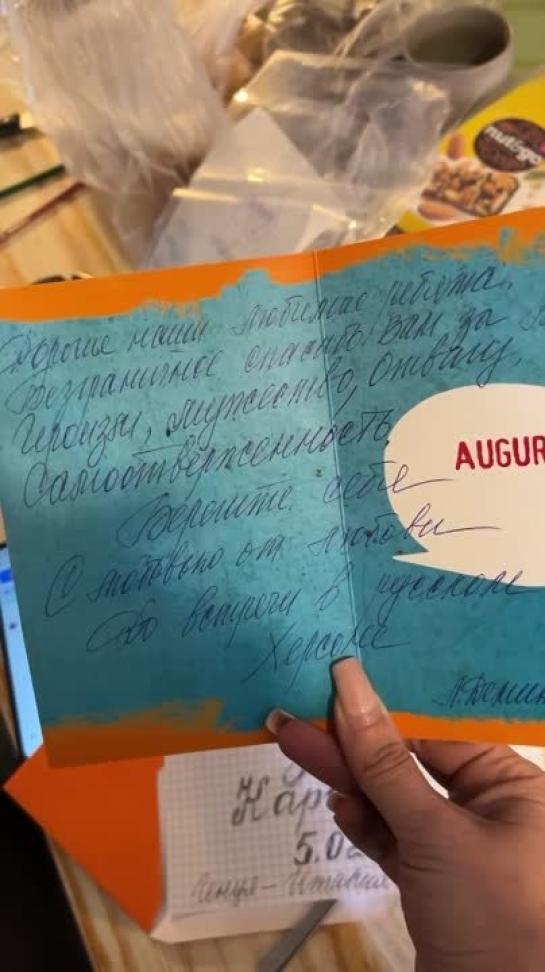 nutágio
Дорогие наши любимые ребята.
Безграничное спасибо Вам за
Героизм, мужество, отвагу,
Самоотверженность.
Берегите себя
С любовью от
До встречи в русском
Херсоне
AUGUR
Кар
5.0
Генуя - Италия